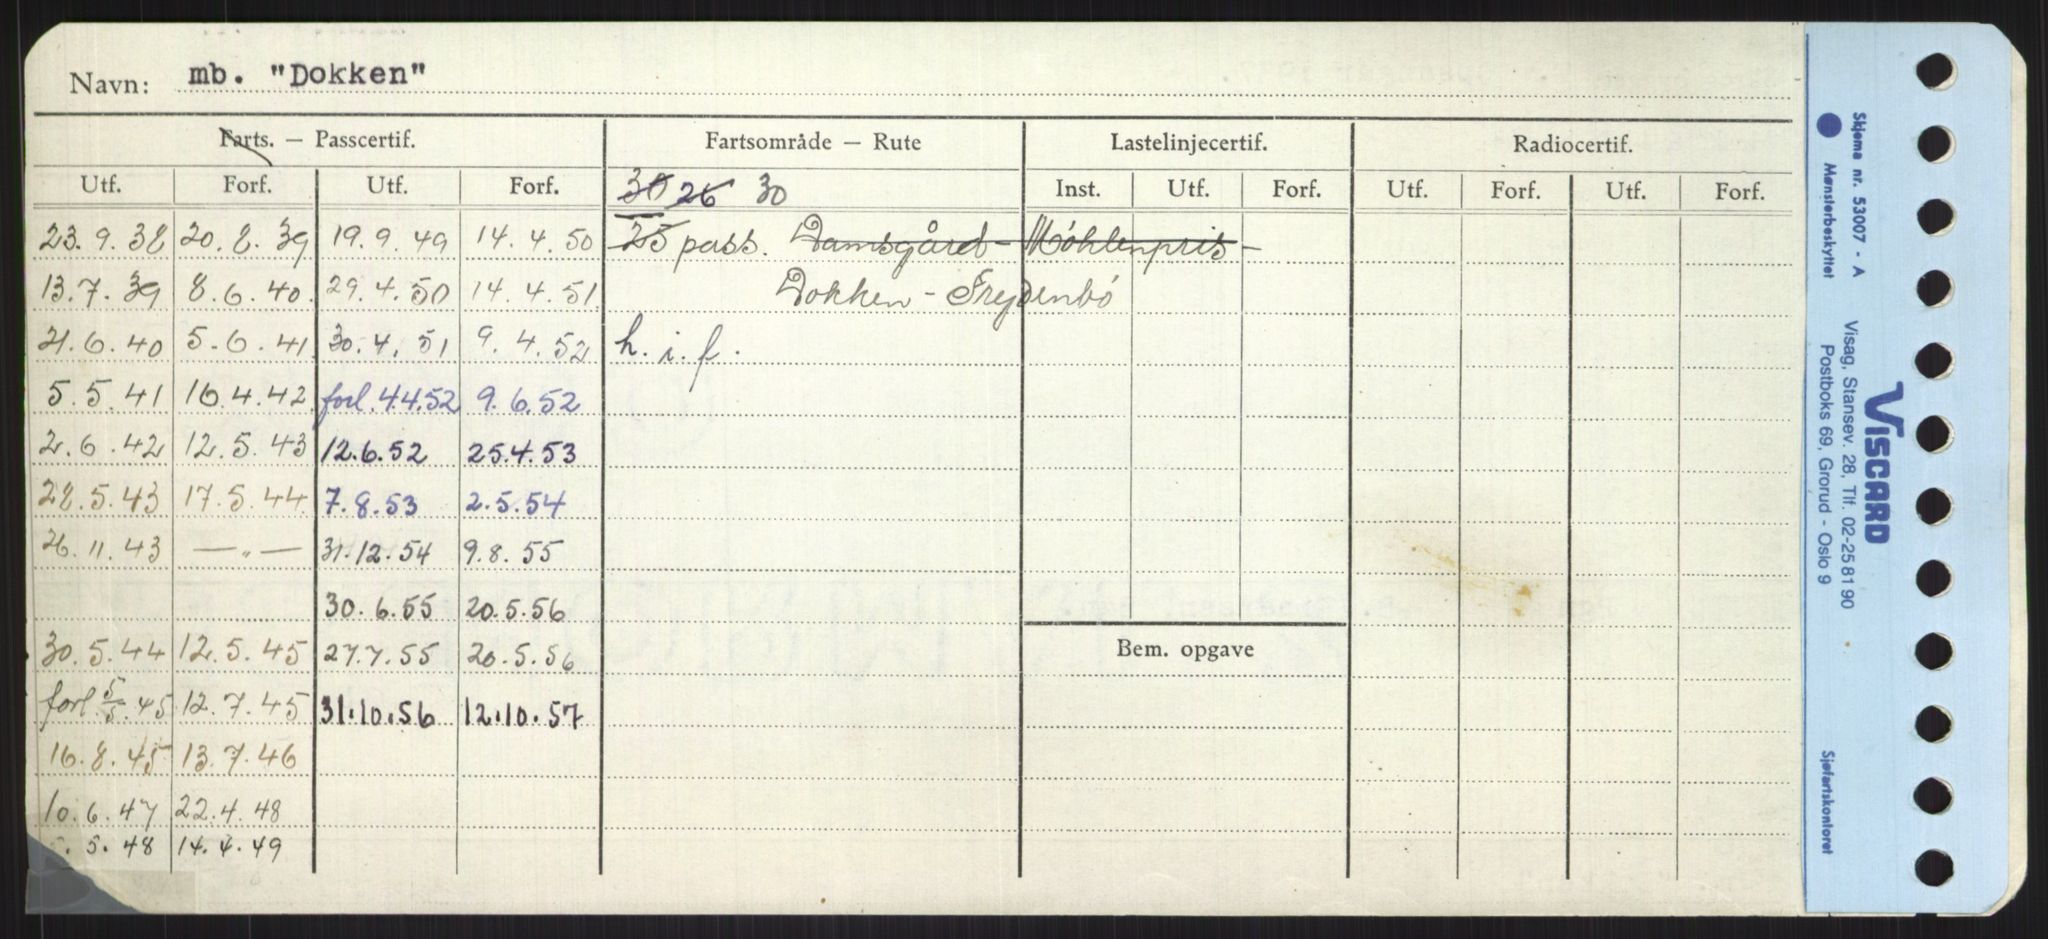 Navn: mb. "Dokken"
Farts. — Passcertif. Fartsområde — Rute Lastelinjecertif. Radiocertif.
Utf. Forf. Utf. Forf. 30 26 30 Inst. Utf. Forf. Utf. Forf. Utf. Forf.
23.9.38 20.8.39 19.9.49 14.4.50 25 pass. Damsgård - Møhlenpris -
13.7.39 8.6.40. 29.4.50 14.4.51 Dokken - Frydenbö
21.6.40 5.6.41 30.4.51 9.4.52 h.i.f.
5.5.41 16.4.42 forl. 4.4.52 9.6.52
2.6.42 12.5.43 12.6.52 25.4.53
28.5.43 17.5.44 7.8.53 2.5.54
26.11.43 —„— 31.12.54 9.8.55
30.6.55 20.5.56
30.5.44 12.5.45 27.7.55 20.5.56 Bem. opgave
forl. 5/5.45 12.7.45 31.10.56 12.10.57
16.8.45 13.7.46
10.6.47 22.4.48
.5.48 14.4.49
Skjema nr. 53007 - A
Mønsterbeskyttet
VISCARD
Visag, Stansev. 28, Tlf. 02-25 81 90
Postboks 69, Grorud - Oslo 9
Sjøfartskontoret